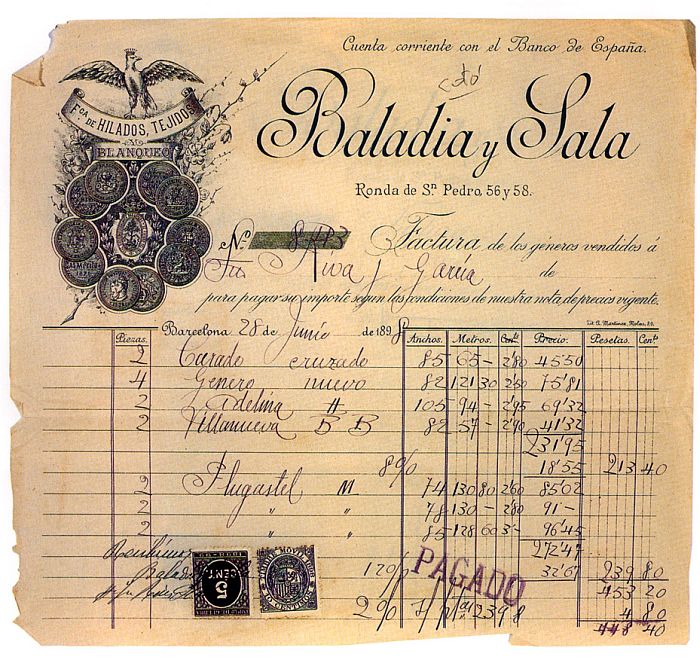 Cuenta corriente con el Banco de España.
cotó
Fca DE HILADOS, TEJIDOS
Y
BLANQUEO
Baladia y Sala
Ronda de Sn. Pedro, 56 y 58.
N.º 8483
Factura de los géneros vendidos á
Riva y García de
para pagar su importe según las condiciones de nuestra nota de precios vigente.
Barcelona 28 de Junio de 1898
Piezas. Anchos. Metros. Cents. Precio. Pesetas. Cents.
2 Curado cruzado 85 65 - 2'80 45'50
4 Genero nuevo 82 121 30 2'50 75'81
2 Adelina H 105 94 - 2'95 69'32
2 Villanueva B B 82 57 - 2'90 41'32
231'95
8% 18'55 213 40
2 Plugastel M 74 130 80 2'60 85'02
2 " " 78 130 - 2'80 91 -
2 " " 85 128 60 3' - 96'45
272'47
12% 32'67 239 80
453 20
2% 239'8 4 80
448 40
PAGADO
5 CENT.
MOVIL
10 CENTIMOS